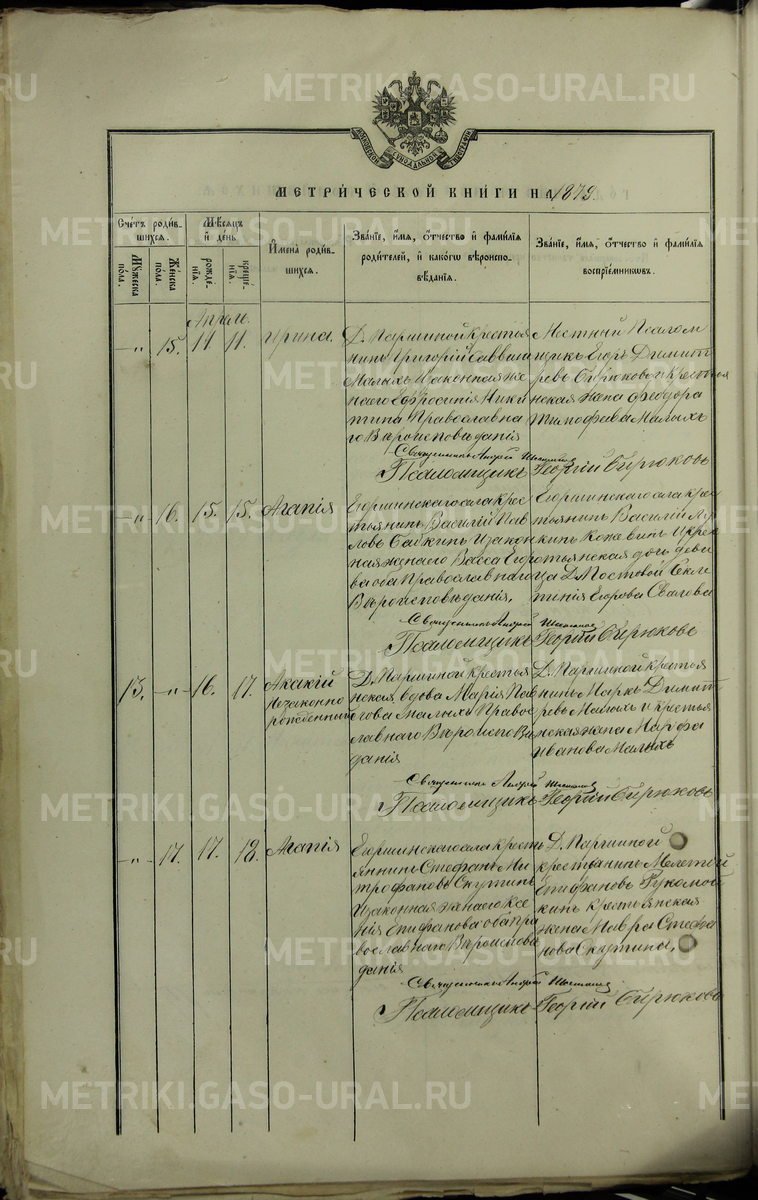 METRIKI.GASO-URAL.RU
МЕТРИ́ЧЕСКОЙ КНИ́ГИ НА 1879.
Сче́тъ роди́в-
шихся.
Мꙋ́жеска
по́ла.
Же́нска
по́ла.
Мѣ́сяцъ
и҆ де́нь
рожде́-
нїѧ.
креще́-
нїѧ.
И҆мена̀ роди́в-
шихся.
Зва́нїе, и҆́мѧ, ѻ҆́тчество и҆ фами́лїѧ
роди́телей, и҆ како́гѡ вѣроиспо-
вѣ́данїѧ.
Зва́нїе, и҆́мѧ, ѻ҆́тчество и҆ фами́лїѧ
воспрїе́мникѡвъ.
Апрѣль.
—„ 15. 11 11. Ирина.
Д. Паршиной крестья
нинъ Григорій Саввинъ
Малыхъ и законная же
на его Ефросинія Ники
тина Православна
го Вѣроисповѣданія
Мѣстный Псалом
щикъ Егоръ Димит
ревъ Бирюковъ и крестьян
ская жена Феодора
Тимофѣева Малыхъ
Священникъ Андрей
Псаломщикъ Георгій Бирюковъ
—„ 16. 15. 15. Агапія
Егоршинскаго села крес
тьянинъ Василій Пав
ловъ и закон
ная жена его Васса Егоро
ва оба Православнаго
Вѣроисповѣданія.
Егоршинскаго села крес
тьянинъ Василій
кинъ Кожевинъ и крес
тьянская дочь дѣви
ца Д. Мостовой Секле
тинія Егорова
Священникъ Андрей
Псаломщикъ Георгій Бирюковъ
13. —„ 16. 17. Акакій
Незаконно
рожденный
Д. Паршиной крестья
нская вдова Марія Пав
лова Малыхъ Правос
лавнаго Вѣроисповѣ
данія
Д. Паршиной крестья
нинъ Маркъ Димит
ревъ Малыхъ и крестья
нская жена Марфа
Иванова Малыхъ
Священникъ Андрей
Псаломщикъ Георгій Бирюковъ
—„ 17. 17. 18. Агапія
Егоршинскаго села кресть
янинъ Стефанъ Ми
трофановъ Скутинъ
и законная жена его Ксе
нія Епифанова оба пра
вославнаго Вѣроисповѣ
данія
Д. Паршиной
крестьянинъ Мелетій
Епифановъ Рукомой
кинъ крестьянская
жена Мавра Стефа
нова Скутина.
Священникъ Андрей
Псаломщикъ Георгій Бирюковъ